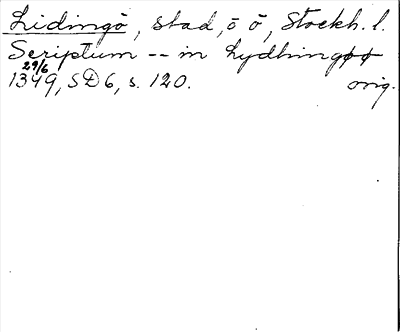 Lidingö, stad, ö ö, Stockh. l.
Scriptum -- in Lydhingøø
29/6
1349, SD 6, s. 120. orig.